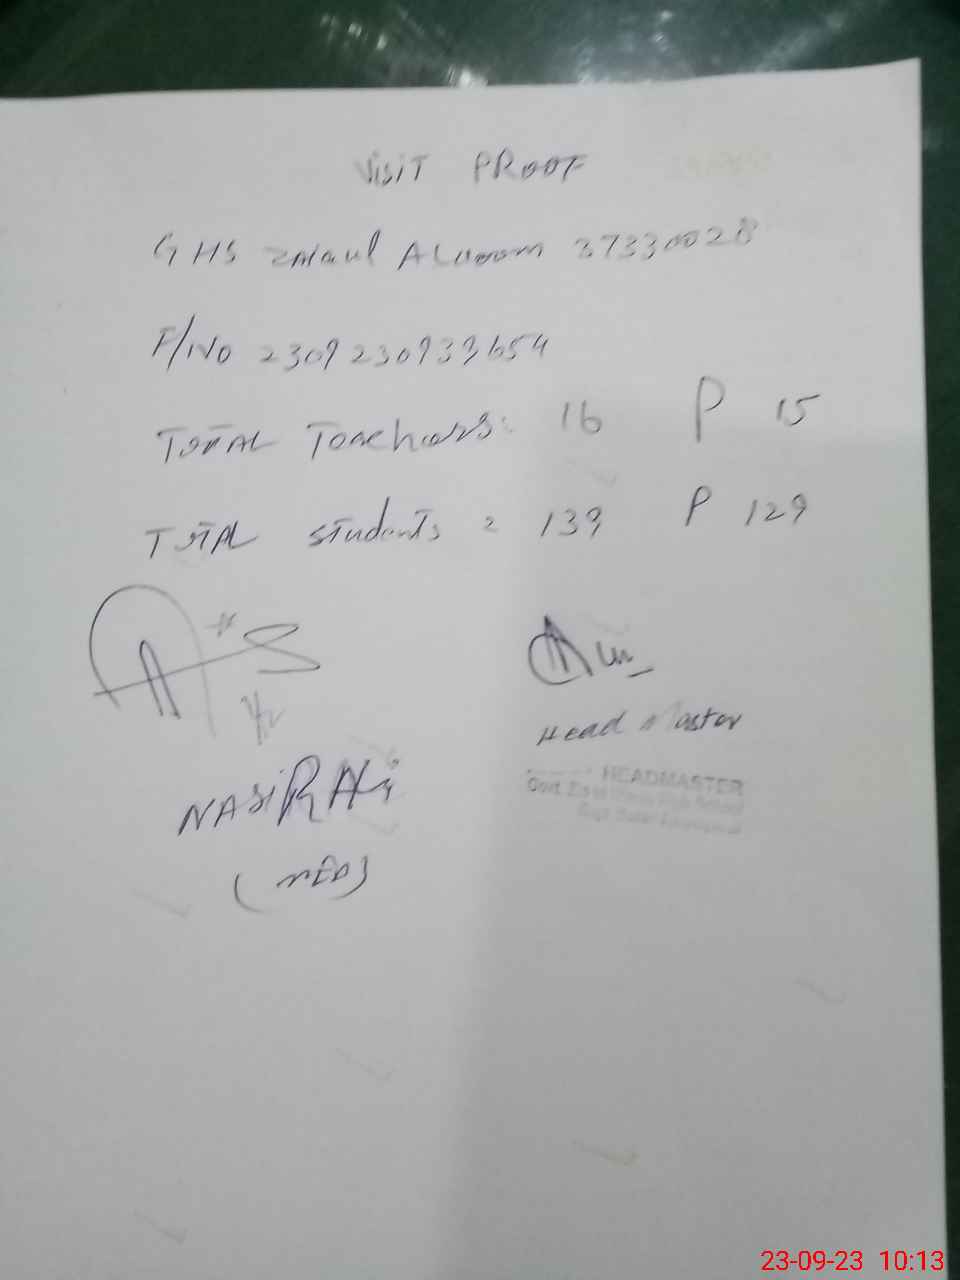 VISIT PROOF
GHS ZMaul ALuoom 37330028
F/No 2309230933654
TOTAL Teachers: 16 P 15
TOTAL students = 139 P 129
Head Master
HEADMASTER
Govt. High School
NASIR Ali
(MEA)
23-09-23 10:13